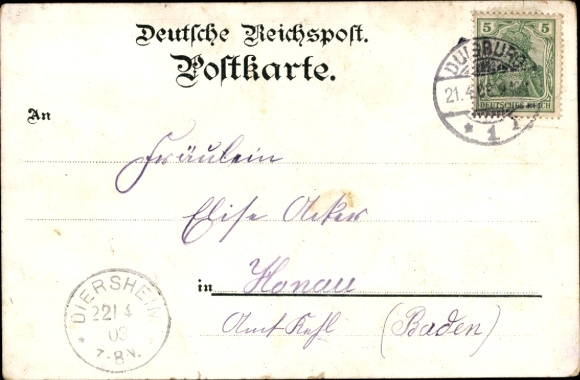 Deutsche Reichspost.
Postkarte.
5 5
DUISBURG
21.4
DEUTSCHES REICH
* 1
An
Fräulein
Elise Acker
in Honau
Amt Kehl (Baden)
DIERSHEIM
22 4
03
7-8 N.